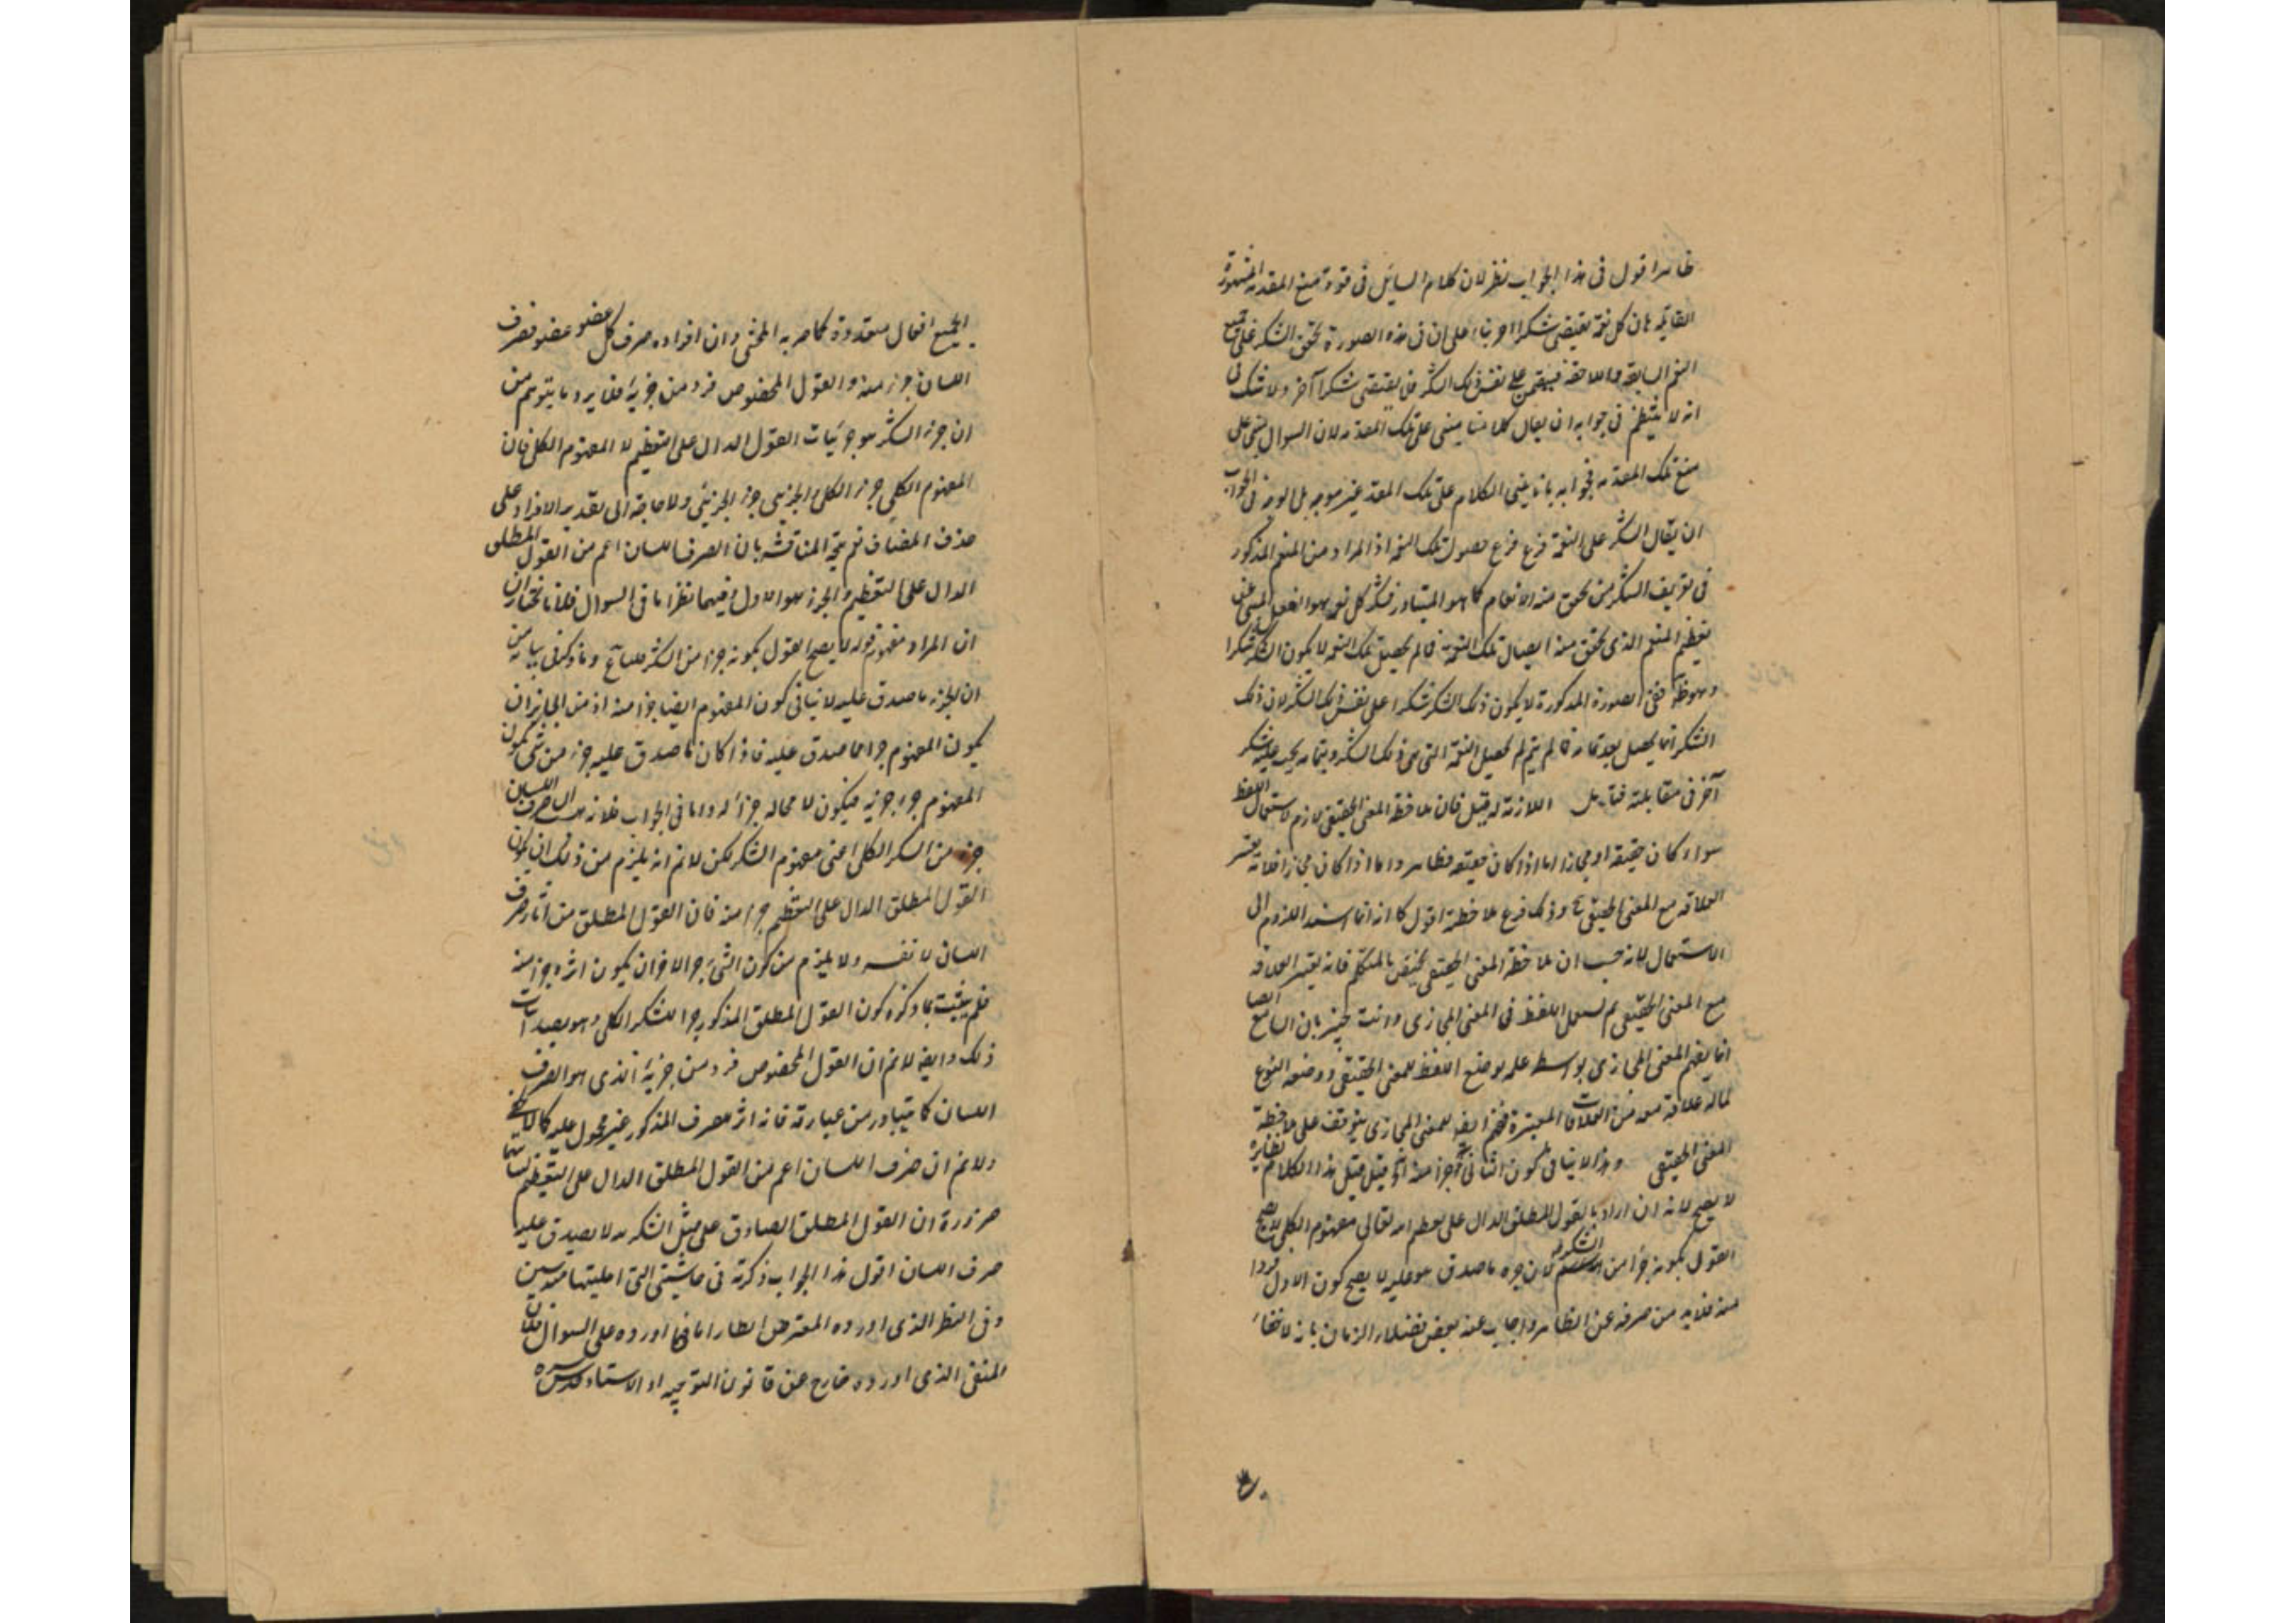 ظاهرا اقول فى هذا الجواب نظر لان كلام السايل فى قوة منع المقدمة المشهورة
القايلة بان كل نعمة يقتضى شكرا اخر بناء على ان فى هذه الصورة تحقق الشكر على جميع
النعم السابقة واللاحقة فيتضمن على نفس ذلك الشكر فلا يقتضى شكرا آخر ولا شك فى
انه لا ينتظم فى جوابه ان يقال كلامنا مبنى على تلك المقدمه لان السوال مبنى على
منع تلك المقدمه فجوابه بانا نبنى الكلام على تلك المقدمة غير موجه بل الوجه فى الجواب
ان يقال الشكر على النعمة فرع حصول تلك النعمة اذ المراد من المنعم المذكور
فى تعريف الشكر من تحقق منه الانعام كما هو المتبادر فشكر كل نعمة هو الفعل المنبئ عن
تعظيم المنعم الذى تحقق منه ايصال تلك النعمة فما لم يحصل تلك النعمة لا يكون الشكر شكرا
وهو ظ ففى الصورة المذكورة لا يكون ذلك الشكر شكرا على نفس ذلك الشكر لان ذلك
الشكر انما يحصل بعد تمامه فما لم يتم لم يحصل النعمة التى هى ذلك الشكر وبتمامه يجب عليه شكر
آخر فى مقابلته فتامل اللازمة له قيل فان ملاحظة المعنى الحقيقى لازم لاستعمال اللفظ
سواء كان حقيقة او مجازا اما اذا كان حقيقة فظاهر واما اذا كان مجازا فلانه يعتبر
العلاقة مع المعنى الحقيقى وذلك فرع ملاحظته اقول كانه انما اسند اللزوم الى
الاستعمال لانه حسب ان ملاحظة المعنى الحقيقى يختص بالمتكلم فانه يعتبر العلاقة
مع المعنى الحقيقى ثم يستعمل اللفظ فى المعنى المجازى وانت خبير بان السامع ايضا
انما يفهم المعنى المجازى بواسطه علمه بوضع اللفظ للمعنى الحقيقى ووضعه النوعى
لماله علاقة معه من العلاقات المعتبرة ففهم ايضا للمعنى المجازى يتوقف على ملاحظة
المعنى الحقيقى وهذا لا ينافى كون الثانى جزءا منه الخ قيل قيل هذا الكلام بظاهره
لا يصح لانه ان اراد بالقول المطلق الدال على تعظيم الله تعالى مفهومه الكلى لا يصح
القول بكونه جزأ من الشكر لان جزءه ما صدق هو عليه لا يصح كون الاول فردا
منه فلابد من صرفه عن الظاهر واجاب عنه بعض فضلاء الزمان بانه لا خفاء
الجميع افعال متعددة كما صرح به المحشى وان افراده صرف كل عضو عضو فصرف
اللسان جزء منه والقول المخصوص فرد من جزئه فلا يرد ما يتوهم من
ان جزء الشكر هو جزئيات القول الدال على التعظيم لا المفهوم الكلى فان
المفهوم الكلى جزء الكلى والجزئى جزء الجزئى ولا حاجة الى تقدير الافراد على
حذف المضاف نعم يتجه المناقشه بان الصرف اللسان اعم من القول المطلق
الدال على التعظيم والجزء هو الاول وفيهما نظر اما فى السوال فلانا نختار ان
ان المراد مفهومه قوله لا يصح القول بكونه جزءا من الشكر قلنا ممنوع وما ذكر فى بيانه من
ان الجزء ما صدق عليه لا ينافى كون المفهوم ايضا جزءا منه اذ من الجايز ان
يكون المفهوم جزءا مما صدق عليه فاذا كان ما صدق عليه جزء من شئ يكون
المفهوم جزء جزئه فيكون لا محاله جزأ له واما فى الجواب فلانه هب ان صرف اللسان
جزء من الشكر الكلى اعنى مفهوم الشكر لكن لا نم انه يلزم من ذلك ان يكون
القول المطلق الدال على التعظيم جزأ منه فان القول المطلق من آثار صرف
اللسان لا نفسه ولا يلزم من كون الشئ جزءا لاخر ان يكون اثره جزأ منه
فلم يثبت بما ذكره كون القول المطلق المذكور جزءا للشكر الكلى وهو بصدد اثبات
ذلك وايضا لا نم ان القول المخصوص فرد من جزئه الذى هو الصرف
اللسان كما يتبادر من عبارته فانه اثر لصرف المذكور غير محمول عليه كما لا يخفى
ولا نم ان صرف اللسان اعم من القول المطلق الدال على التعظيم
ضرورة ان القول المطلق الصادق على مثل الشكر لله لا يصدق عليه
صرف اللسان اقول هذا الجواب ذكرته فى حاشيتى التى امليتها منذ سنين
وفى النظر الذى اورده المعترض انظار اما فيما اورده على السوال فلان
المنع الذى اورده خارج عن قانون التوجيه اذ الاستاد قدس سره